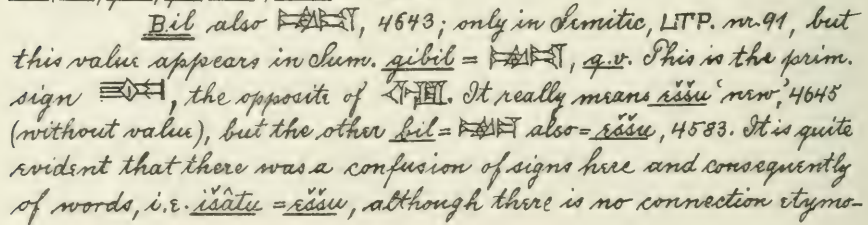 Bil also, 4643; only in Semitic, LTP. nr. 91, but
this value appears in Sum. gibil = , q.v. This is the prim.
sign , the opposite of . It really means eššu 'new,' 4645
(without value), but the other bil = also = eššu, 4583. It is quite
evident that there was a confusion of signs here and consequently
of words, i.e. išâtu = eššu, although there is no connection etymo-